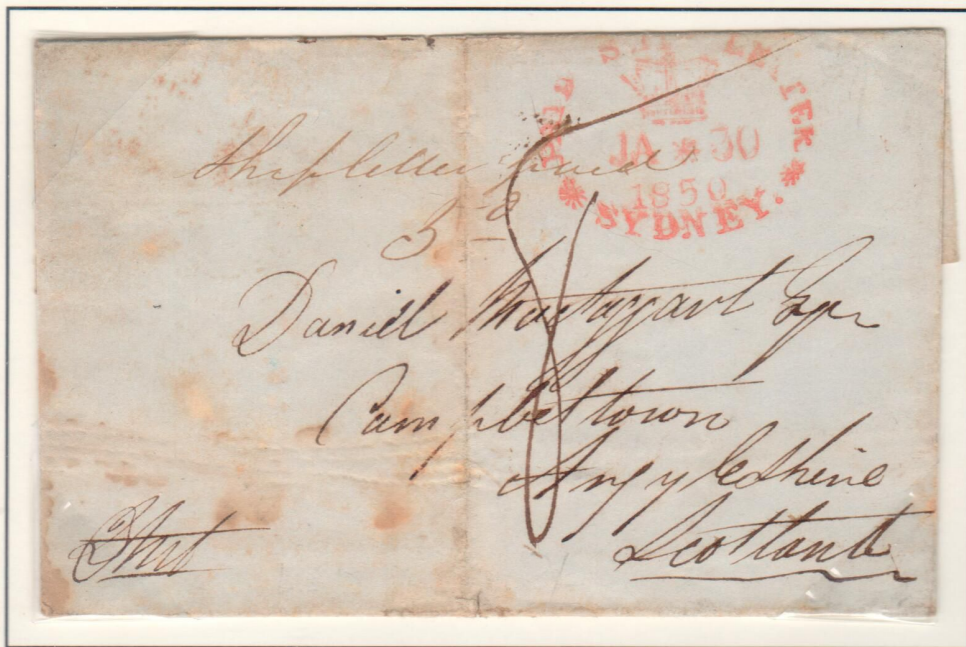 PAID SHIP LETTER
JA * 30
1850
* SYDNEY. *
Ship letter paid
3d
8
Daniel Mactaggart Esqr
Campbeltown
Argyleshire
Scotland